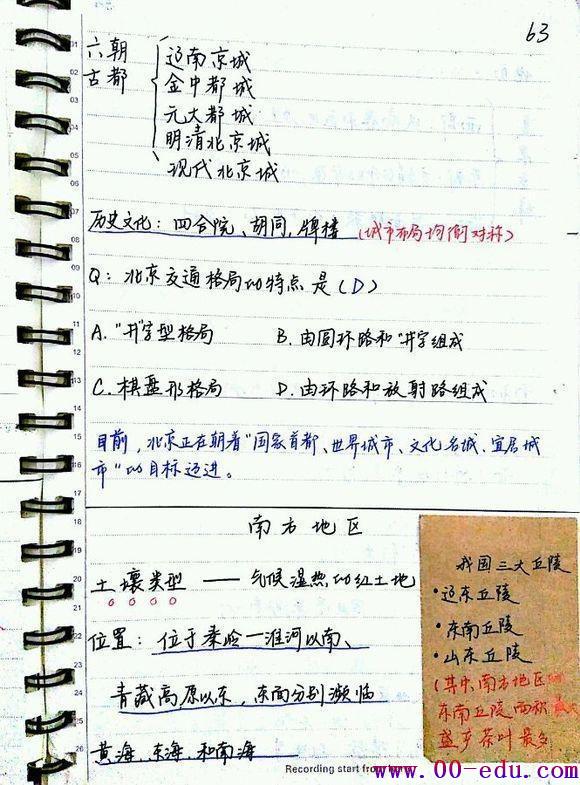 63
六朝
古都
辽南京城
金中都城
元大都城
明清北京城
现代北京城
历史文化：四合院、胡同、牌楼（城市布局均衡对称）
Q：北京交通格局的特点是（D）
A."井"字型格局 B.由圆环路和"井"字组成
C.棋盘形格局 D.由环路和放射路组成
目前，北京正在朝着"国家首都、世界城市、文化名城、宜居城
市"的目标迈进。
南方地区
土壤类型 —— 气候湿热的红土地
位置：位于秦岭—淮河以南、
青藏高原以东，东面分别濒临
黄海、东海、和南海
我国三大丘陵
·辽东丘陵
·东南丘陵
·山东丘陵
（其中，南方地区的
东南丘陵面积最大
盛产茶叶最多
Recording start from here
www.00-edu.com